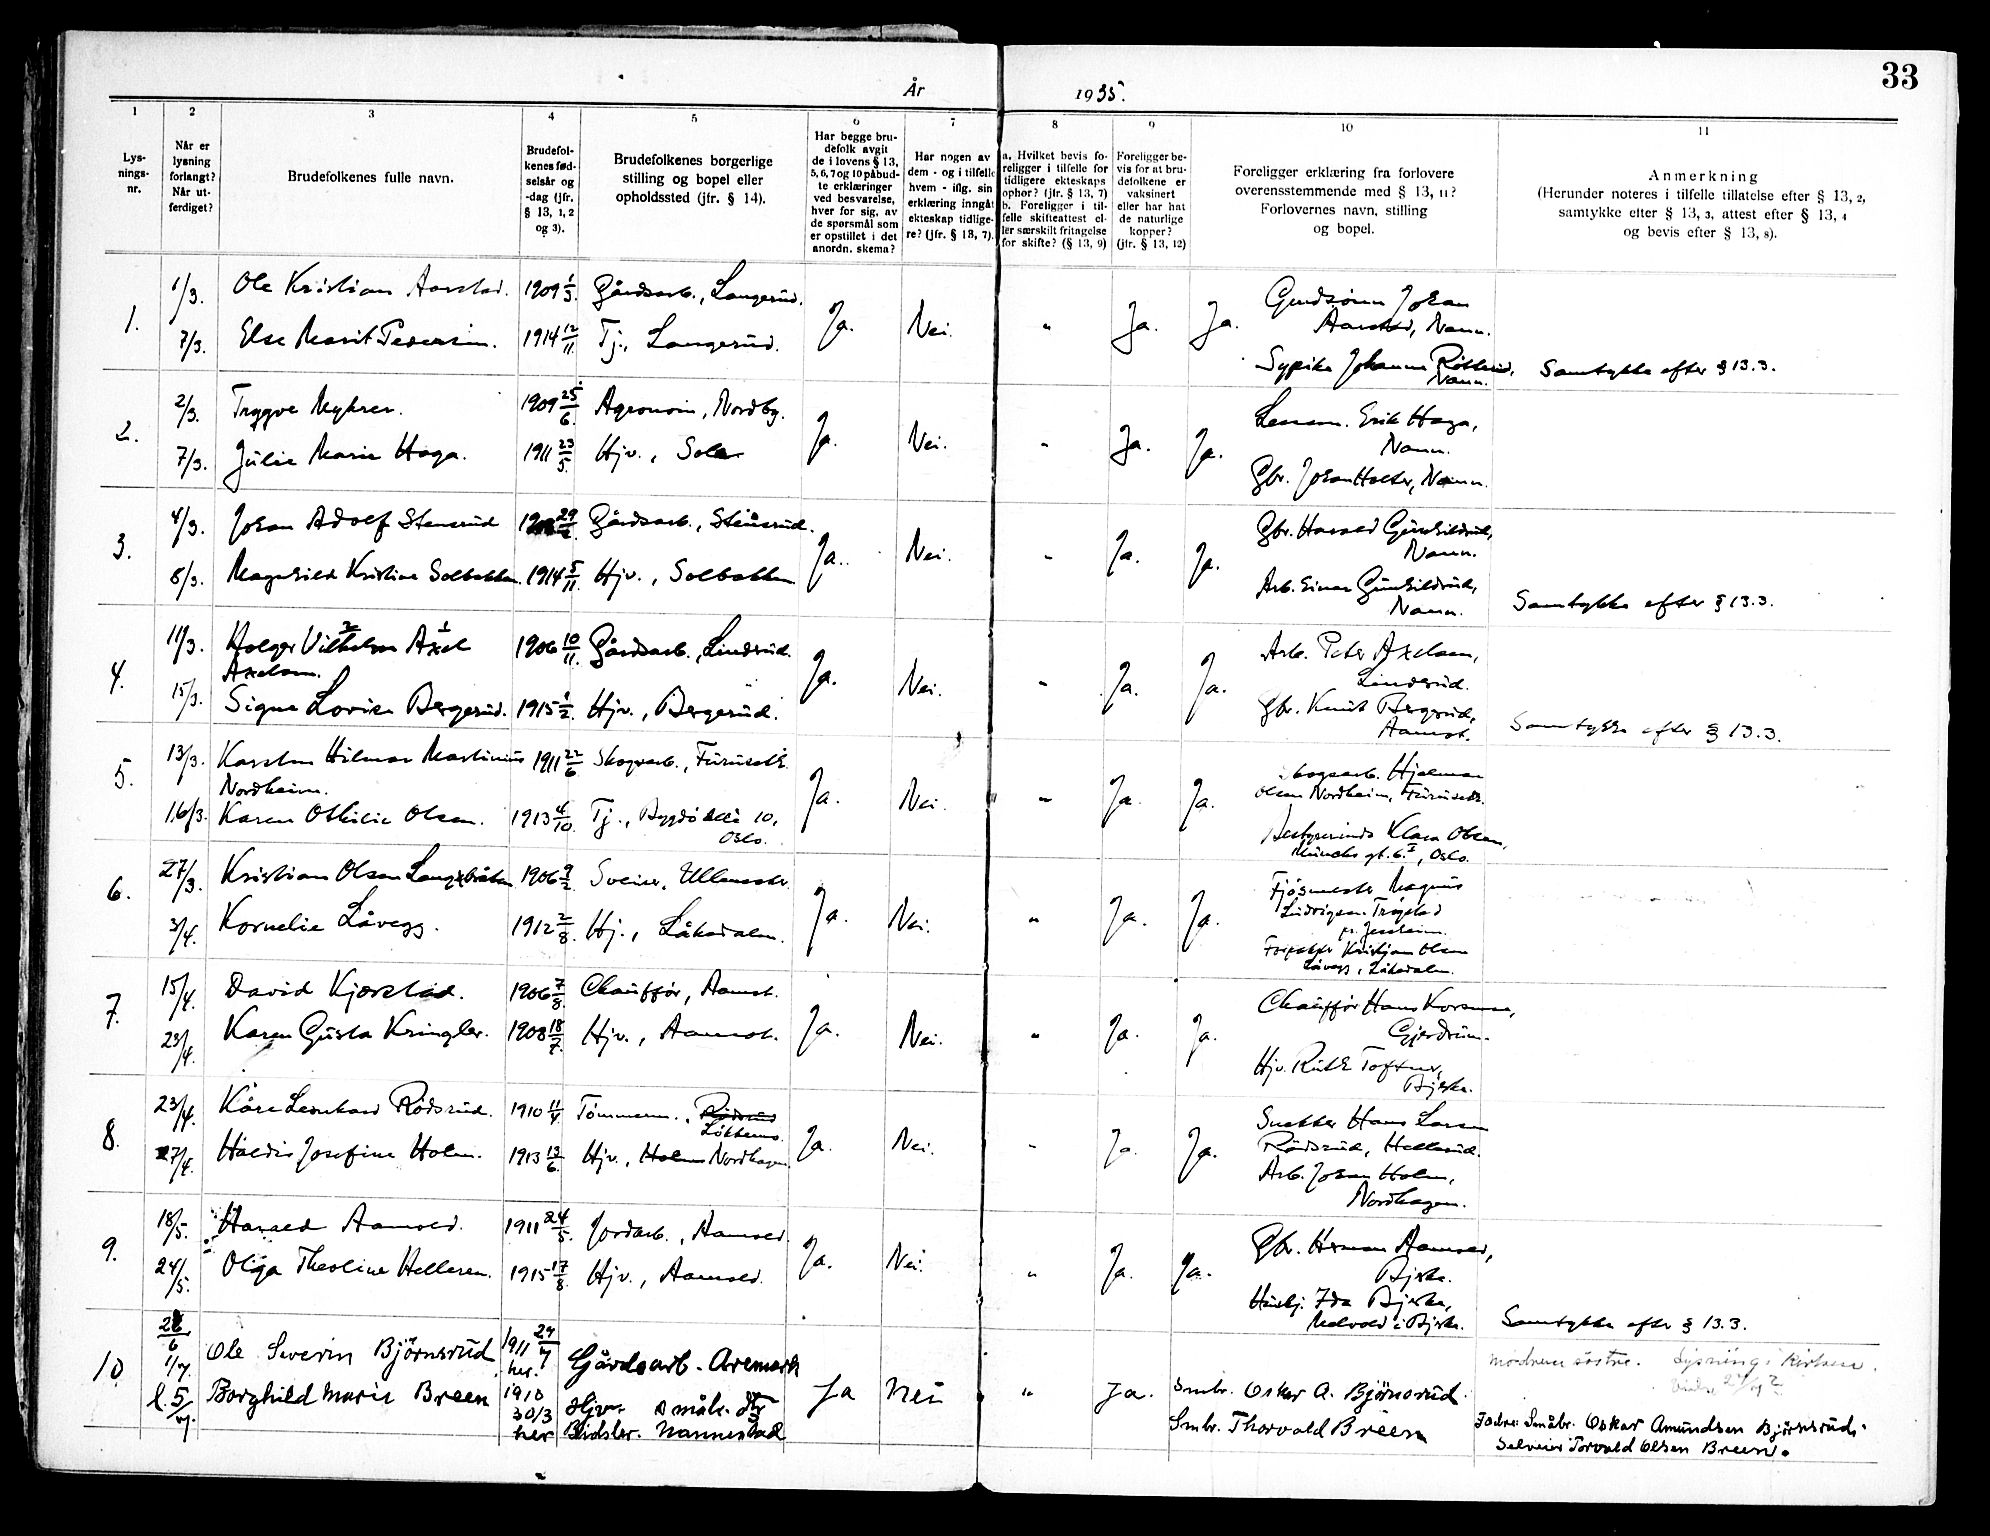 33
År 1935.
1
2
3
4
5
6
7
8
9
10
11
Lys-
nings-
nr.
Når er
lysning
forlangt?
Når ut-
ferdiget?
Brudefolkenes fulle navn.
Brudefol-
kenes fød-
selsår og
-dag (jfr.
§ 13, 1, 2
og 3).
Brudefolkenes borgerlige
stilling og bopel eller
opholdssted (jfr. § 14).
Har begge bru-
defolk avgit
de i lovens § 13,
5, 6, 7 og 10 påbud-
te erklæringer
ved besvarelse,
hver for sig, av
de spørsmål som
er opstillet i det
anordn. skema?
Har nogen av
dem - og i tilfelle
hvem - iflg. sin
erklæring inngåt
ekteskap tidlige-
re? (jfr. § 13, 7).
a. Hvilket bevis fo-
religger i tilfelle for
tidligere ekteskaps
ophør? (jfr. § 13, 7)
b. Foreligger i til-
felle skifteattest el-
ler særskilt fritagelse
for skifte? (§ 13, 9)
Foreligger be-
vis for at bru-
defolkene er
vaksinert
eller har hat
de naturlige
kopper?
(jfr. § 13, 12)
Foreligger erklæring fra forlovere
overensstemmende med § 13, 11?
Forlovernes navn, stilling
og bopel.
Anmerkning
(Herunder noteres i tilfelle tillatelse efter § 13, 2,
samtykke efter § 13, 3, attest efter § 13, 4
og bevis efter § 13, 8).
1. 1/3. Ole Kristian Aarstad. 1909 1/3. Gårdsarb., Langerud. Ja. Nei. " Ja. Ja. Johan
Aarstad, Nann.
7/3. Else Marit Pedersen. 1914 12/11. Tj., Langerud.
Sypike Johanne
Nann. Samtykke efter § 13.3.
2. 2/3. Trygve Myhrer. 1909 25/6. Agronom, Nordby. Ja. Nei. " Ja. Ja. Erik Haga,
Nann.
7/3. Julie Marie Haga. 1911 23/5. Hjv.,
Gbr. Johan Holter, Nann.
3. 4/3. Johan Adolf Stensrud 29/2. Gårdsarb., Stensrud. Ja. Nei. " Ja. Ja. Gbr. Harald Gunhildrud,
Nann.
8/3. Magnhild Kristine Solbakken 1914 5/11. Hjv., Solbakken
Arb. Einar Gunhildrud,
Nann. Samtykke efter § 13.3.
4. 11/3. Holger Vilhelm Axel 1906 10/11. Gårdsarb., Lindsrud. Ja. Nei. " Ja. Ja. Arb. Peter Axelsen,
Axelsen. Lindsrud.
15/3. Signe Lovise Bergerud. 1915 1/2. Hjv., Bergerud.
Gbr. Knut Bergerud,
Aamot. Samtykke efter § 13.3.
5. 13/3. Karsten Hilmar Martinius 1911 22/6 Skogsarb., Furuseth. Ja. Nei. " Ja. Ja. Skogsarb. Hjalmar
Nordheim. Olsen Nordheim, Furuseth.
16/3. Karen Othilie Olsen. 1913 4/10. Tj., Bygdö allé 10,
Oslo.
Bestyrerinde Klara Olsen,
Munchs gt. 6. I, Oslo.
6. 27/3. Kristian Olsen 1906 9/2. Sveiser, Ja. Nei. " Ja. Ja. Fjøsmester Magnus
Ludvigsen Trøgstad
pr. Jessheim.
3/4. Kornelie Låvegg. 1912 2/8. Hj., Låkedalen.
Kristian Olsen
Låvegg, Låkedalen.
7. 15/4. David Kjærstad. 1906 7/8. Chauffør, Aamot. Ja. Nei. " Ja. Ja. Chauffør Hans
Gjerdrum.
23/4. Karen Gusta Kringler. 1908 18/7. Hjv., Aamot.
Hjv. Ruth Toftner,
Bjerke.
8. 23/4. Kåre Leonhard Rødsrud. 1910 11/4 Tømmerm., Rødsrud
Ja. Nei. " Ja. Ja. Snekker Hans Larsen
Rødsrud, Hellerud.
27/4. Haldis Josefine Holm. 1913 13/6 Hjv., Holm Nordhagen.
Arb. Johan Holm,
Nordhagen.
9. 18/5. Harald Aamold. 1911 24/5. Jordarb., Aamold. Ja. Nei. " Ja. Ja. Gbr. Herman Aamold,
Bjerke.
24/5. Olga Theoline Helleren. 1915 17/8. Hjv., Aamold.
Husbj. Ida Bjerke,
i Bjerke. Samtykke efter § 13.3.
10. 6 1/7. Ole Severin Björnsrud 1911 24/7 her. Gårdsarb. Aremark Ja Nei " Ja. Smbr. Oskar A. Björnsrud. Lysning i kirken.
l. 5/7. Borghild Marie Breen 1910 30/3 her Hjv. småbr. dtr
Bidsler. Nannestad
Smbr. Thorvald Breen
Fadre: Småbr. Oskar Amundsen Björnsrud.
Selveier Torvald Olsen Breen.